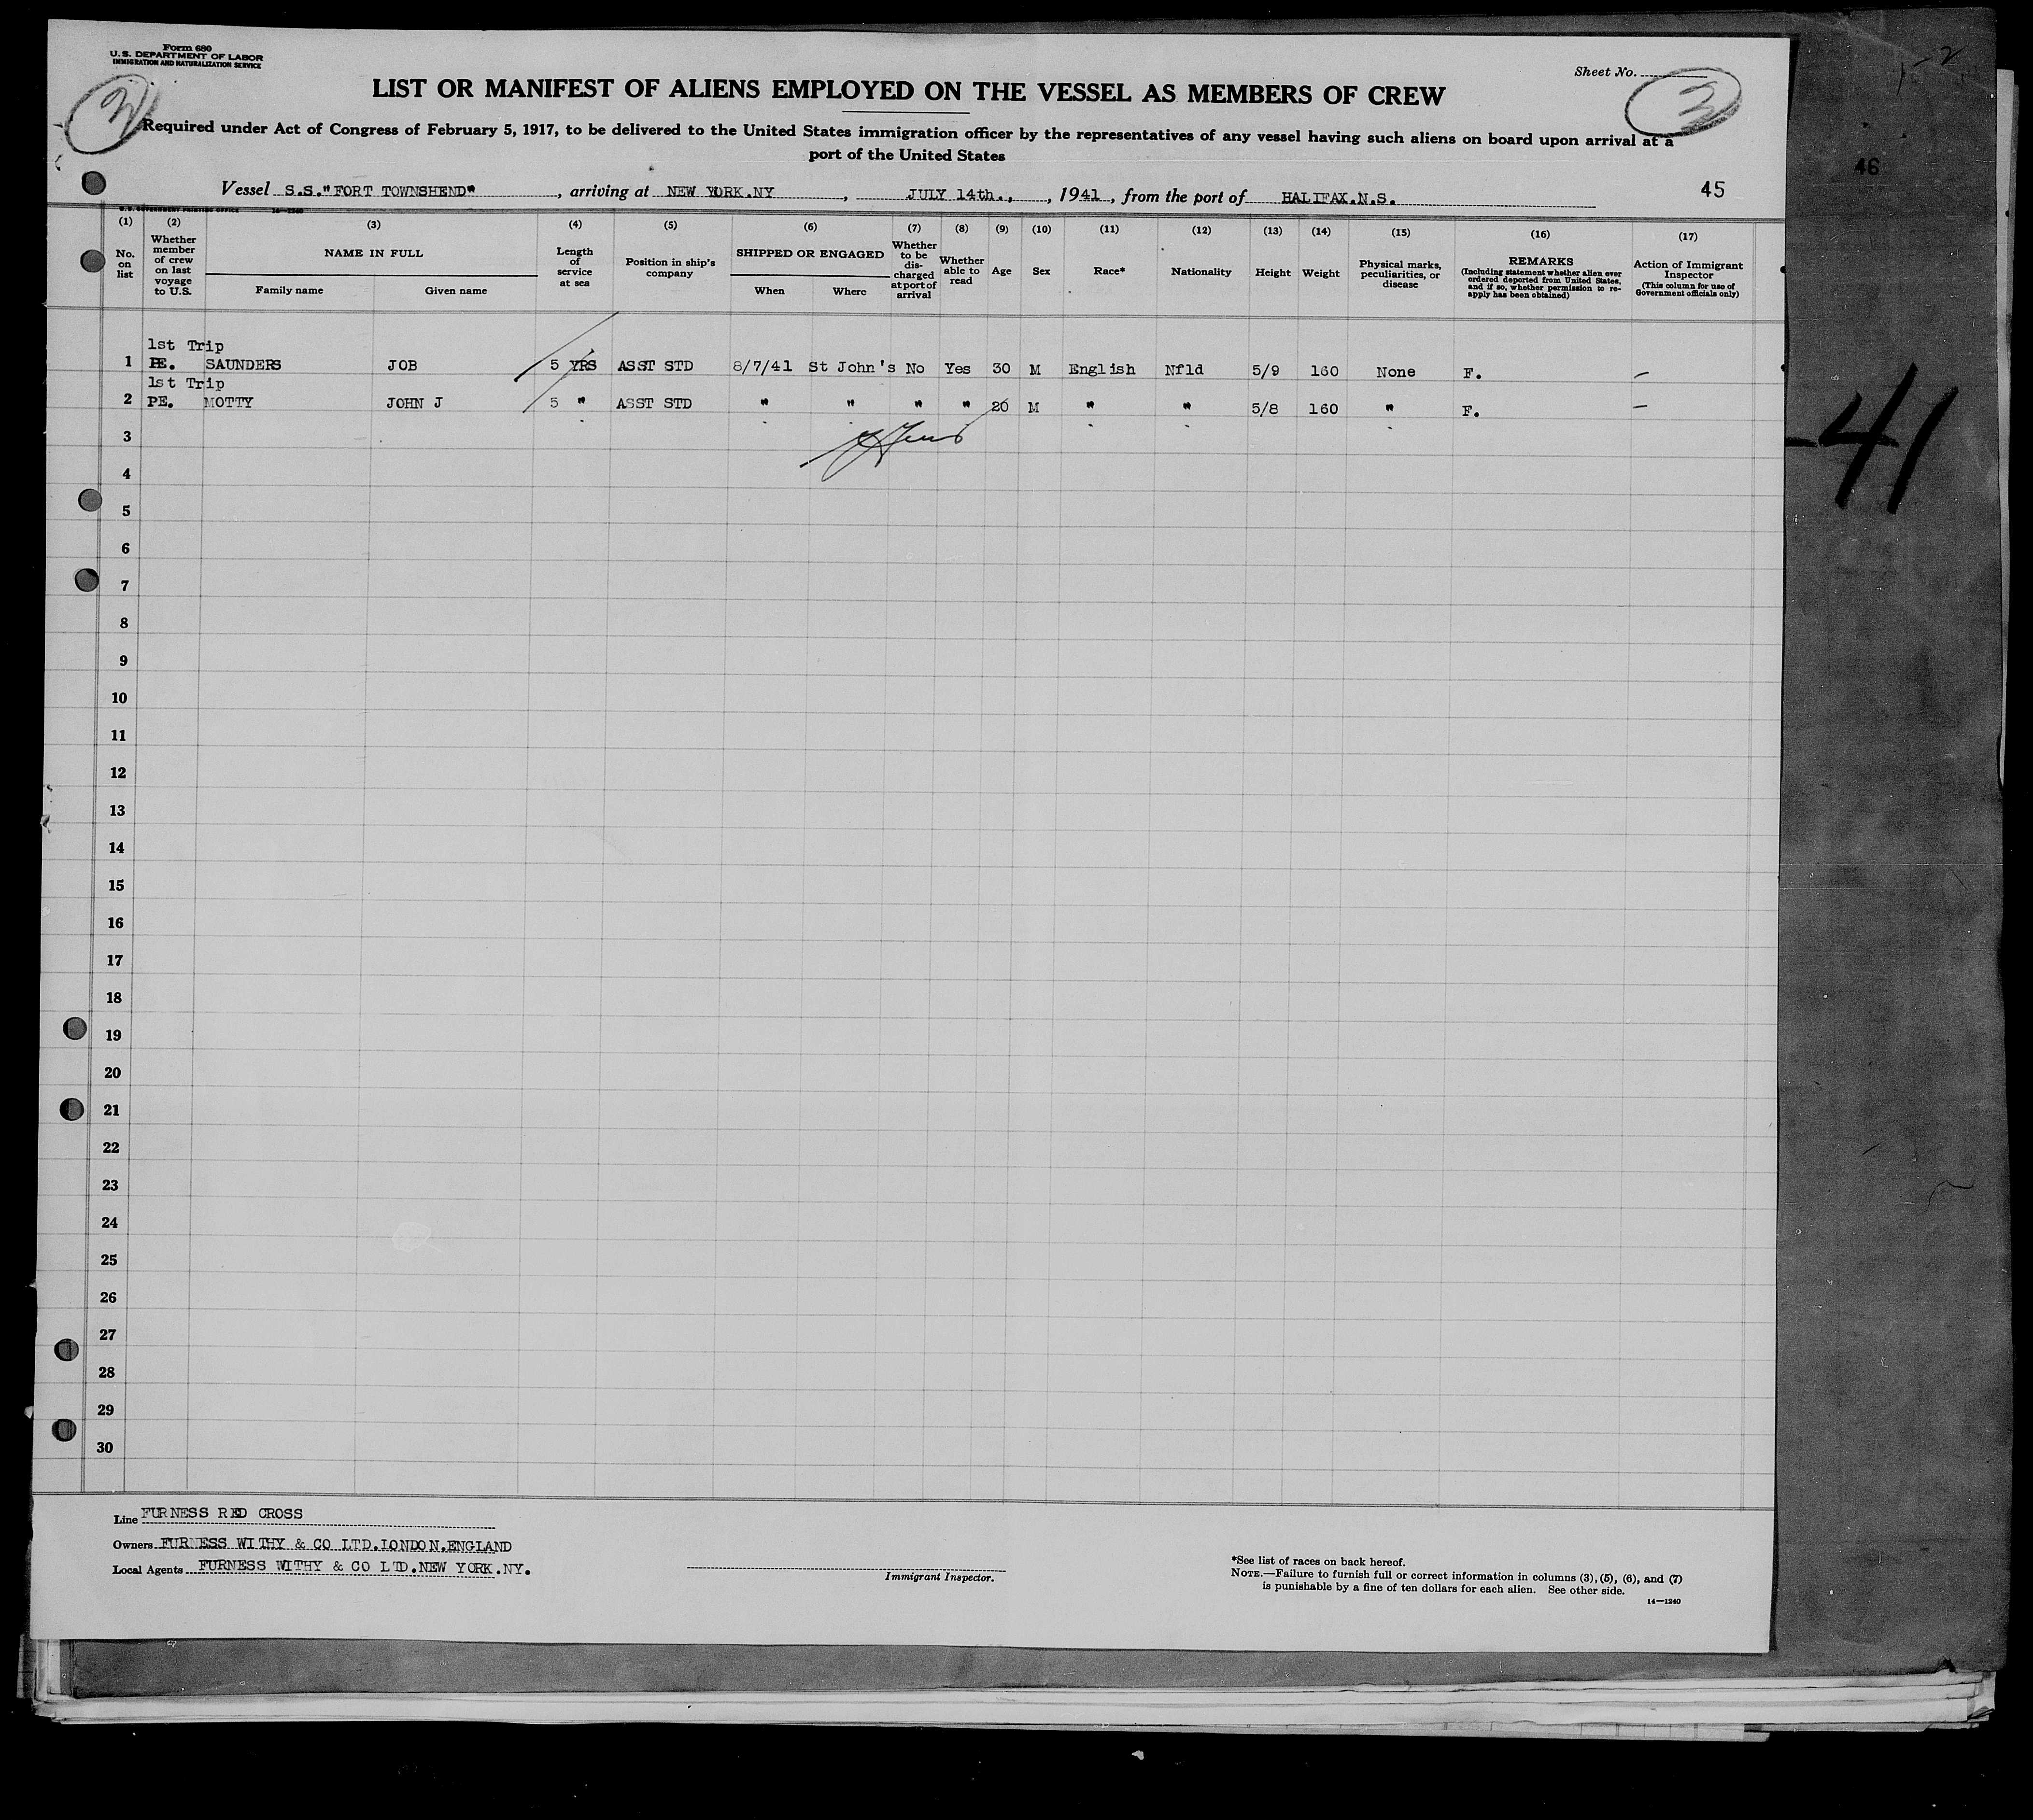 Form 680
U.S. DEPARTMENT OF LABOR
IMMIGRATION AND NATURALIZATION SERVICE
Sheet No.
3
3
LIST OR MANIFEST OF ALIENS EMPLOYED ON THE VESSEL AS MEMBERS OF CREW
Required under Act of Congress of February 5, 1917, to be delivered to the United States immigration officer by the representatives of any vessel having such aliens on board upon arrival at a
port of the United States
46
Vessel S.S."FORT TOWNSHEND", arriving at NEW YORK.NY, JULY 14th.,, 1941, from the port of HALIFAX.N.S. 45
U.S. GOVERNMENT PRINTING OFFICE 14-1240
(1) (2) (3) (4) (5) (6) (7) (8) (9) (10) (11) (12) (13) (14) (15) (16) (17)
No. on list
Whether member of crew on last voyage to U.S.
NAME IN FULL
Family name Given name
Length of service at sea
Position in ship's company
SHIPPED OR ENGAGED
When Where
Whether to be dis-charged at port of arrival
Whether able to read
Age
Sex
Race*
Nationality
Height
Weight
Physical marks, peculiarities, or disease
REMARKS
(Including statement whether alien ever ordered deported from United States, and if so, whether permission to re-apply has been obtained)
Action of Immigrant Inspector
(This column for use of Government officials only)
1st Trip
1 PE. SAUNDERS JOB 5 YRS ASST STD 8/7/41 St John's No Yes 30 M English Nfld 5/9 160 None F. –
1st Trip
2 PE. MOTTY JOHN J 5 " ASST STD " " " " 20 M " " 5/8 160 " F. –
-41
3
4
5
6
7
8
9
10
11
12
13
14
15
16
17
18
19
20
21
22
23
24
25
26
27
28
29
30
Line FURNESS RED CROSS
Owners FURNESS WITHY & CO LTD.LONDON.ENGLAND
Local Agents FURNESS WITHY & CO LTD.NEW YORK.NY.
Immigrant Inspector.
*See list of races on back hereof.
NOTE.—Failure to furnish full or correct information in columns (3), (5), (6), and (7)
is punishable by a fine of ten dollars for each alien. See other side.
14—1240